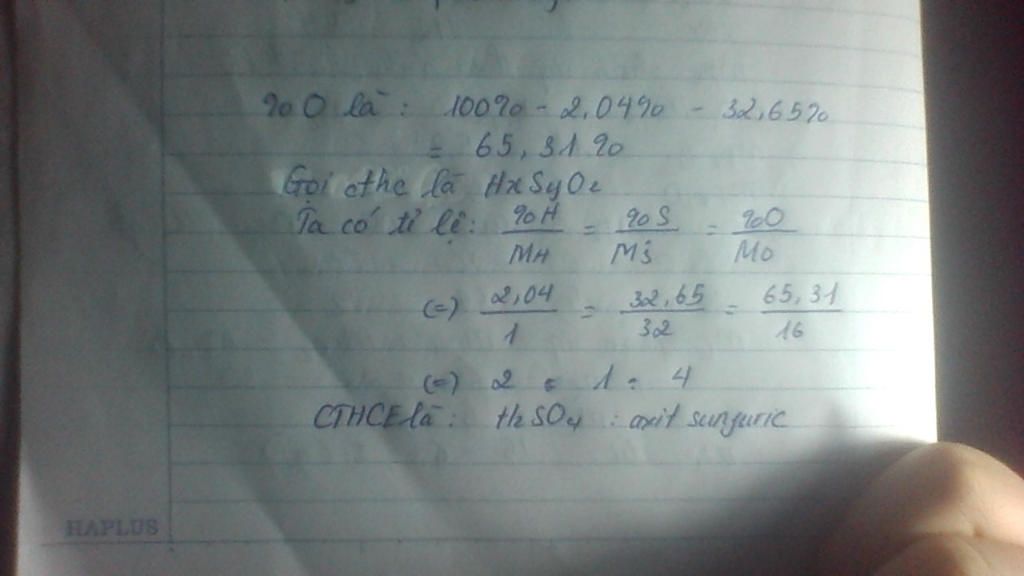 %O là: 100% - 2,04% - 32,65%
= 65,31%
Gọi cthc là HxSyOz
Ta có tỉ lệ: %H/MH = %S/MS = %O/MO
(=) 2,04/1 = 32,65/32 = 65,31/16
(=) 2 = 1 = 4
CTHCE là: H2SO4 : axit sunfuric
HAPLUS